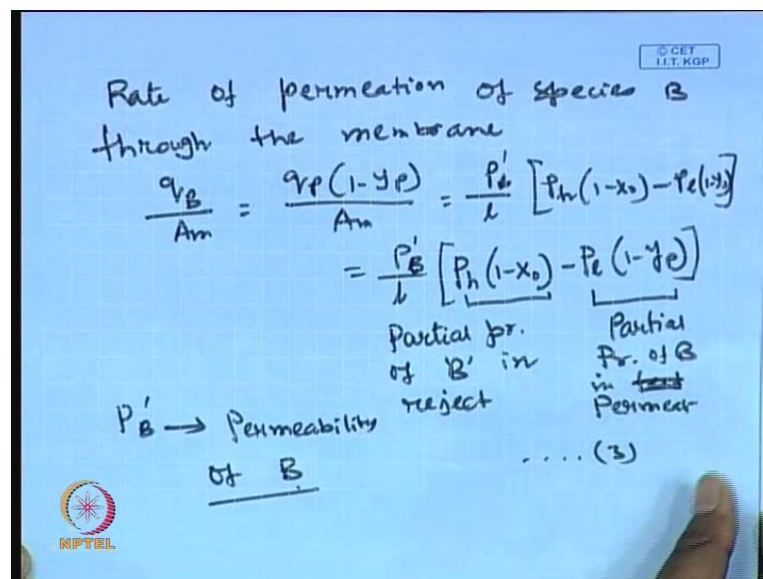 © CET
I.I.T. KGP
Rate of permeation of species B
through the membrane
q_B / A_m = q_p (1-y_p) / A_m = P'_B / l [P_h (1-x_0) - P_l (1-y_p)]
= P'_B / l [P_h (1-x_0) - P_l (1-y_p)]
Partial pr. of 'B' in reject
Partial Pr. of B in Permeat
P'_B → Permeability of B
.... (3)
NPTEL